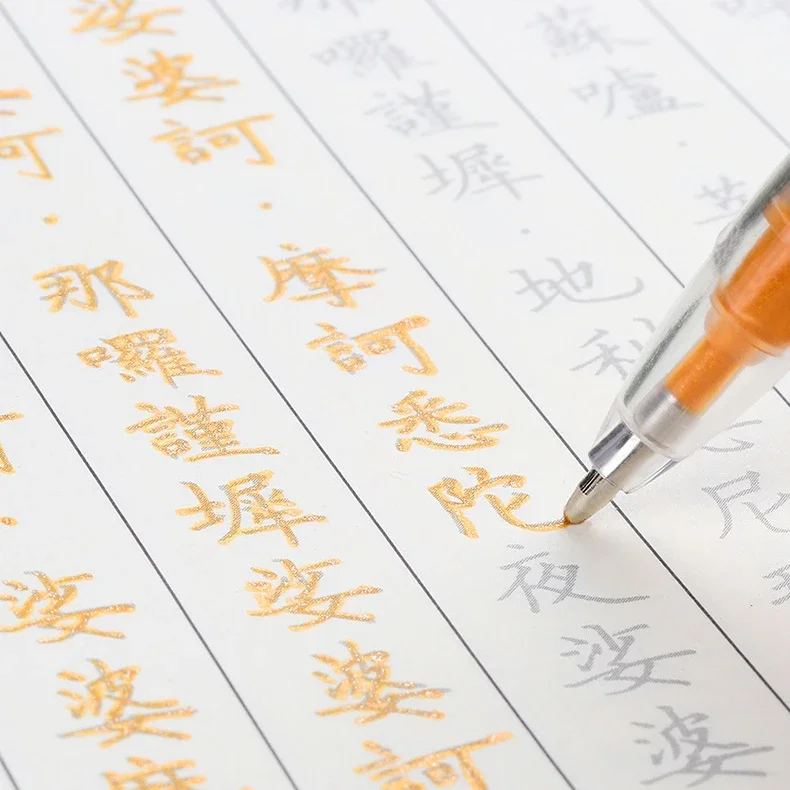 蘇嚧．
囉謹墀．地利尼
娑婆訶．摩訶悉陀夜娑婆
訶．那囉謹墀娑婆訶
．娑婆摩